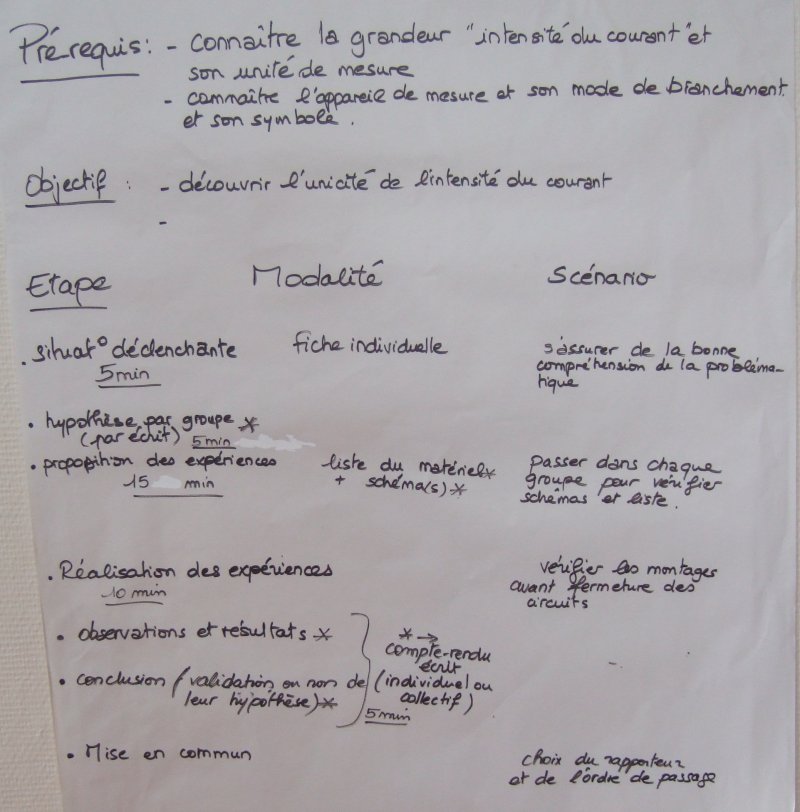 Prérequis : - connaître la grandeur "intensité du courant" et
son unité de mesure
- connaître l'appareil de mesure et son mode de branchement
et son symbole.
Objectif : - découvrir l'unicité de l'intensité du courant
-
Etape Modalité Scénario
. situat° déclenchante fiche individuelle s'assurer de la bonne
5 min compréhension de la probléma-
tique
• hypothèse par groupe *
(par écrit) 5 min
• proposition des expériences liste du matériel * passer dans chaque
15 min + schéma(s) * groupe pour vérifier
schémas et liste.
. Réalisation des expériences vérifier les montages
10 min avant fermeture des
circuits
• observations et résultats * * →
compte-rendu
écrit
• conclusion (validation ou non de (individuel ou
leur hypothèse) * collectif)
5 min
• Mise en commun choix du rapporteur
et de l'ordre de passage